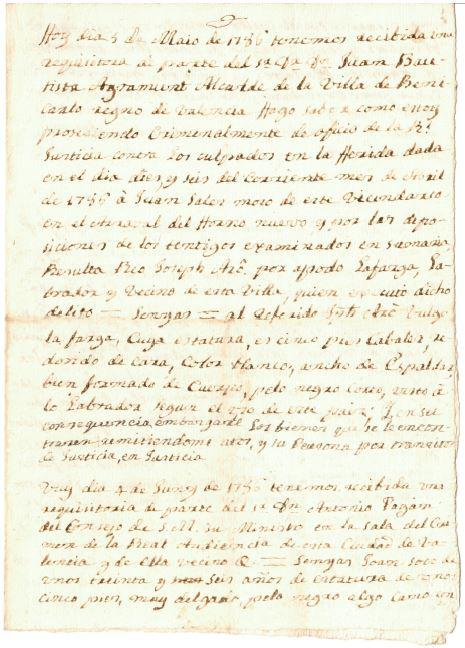 Hoy dia 5 de Maio de 1786 tenemos recibida una
requisitoria de parte del Sr. Dr. Dn. Juan Bau-
tista Agramunt Alcalde de la Villa de Beni-
carlo regno de Valencia Hago saber como estoy
prosediendo Criminalmente de officio de la Rl.
Justicia contra los culpados en la Herida dada
en el dia dies y seis del corriente mes de Abril
de 1786 à Juan Sales moso de este Vecindario
en el Arraval del Horno nuevo y por las depo-
siciones de los testigos examinados en sumaria,
Resulta Reo Joseph por apodo Lafarga, La-
brador y Vecino de esta Villa, quien executó dicho
delito = Senyas = al Referido
la farga, Cuya estatura, es cinco pies cabales, re-
dondo de cara, Color blanco, ancho de Espaldas,
bien formado de Cuerpo, pelo negro Corto, visto à
lo Labrador segun el uzo de este pais; en su
consequencia embargarle los bienes que se le encon-
traren remitiendome atos, y su Persona por transitos
de Justicia, en Justicia
Vuy dia 4 de Juny de 1786 tenemos recibida una
requisitoria de parte del Sr. Dn. Antonio Fagan
del Consejo de S.M. su Ministro en la Sala del Cri-
men de la Real Audiencia de esta Ciudad de Va-
lencia y de Ella vecino &. = Senyas Joan Soto de
unos treinta y seis años de Estatura de unos
cinco pies, muy delgado, pelo negro algo Cano con